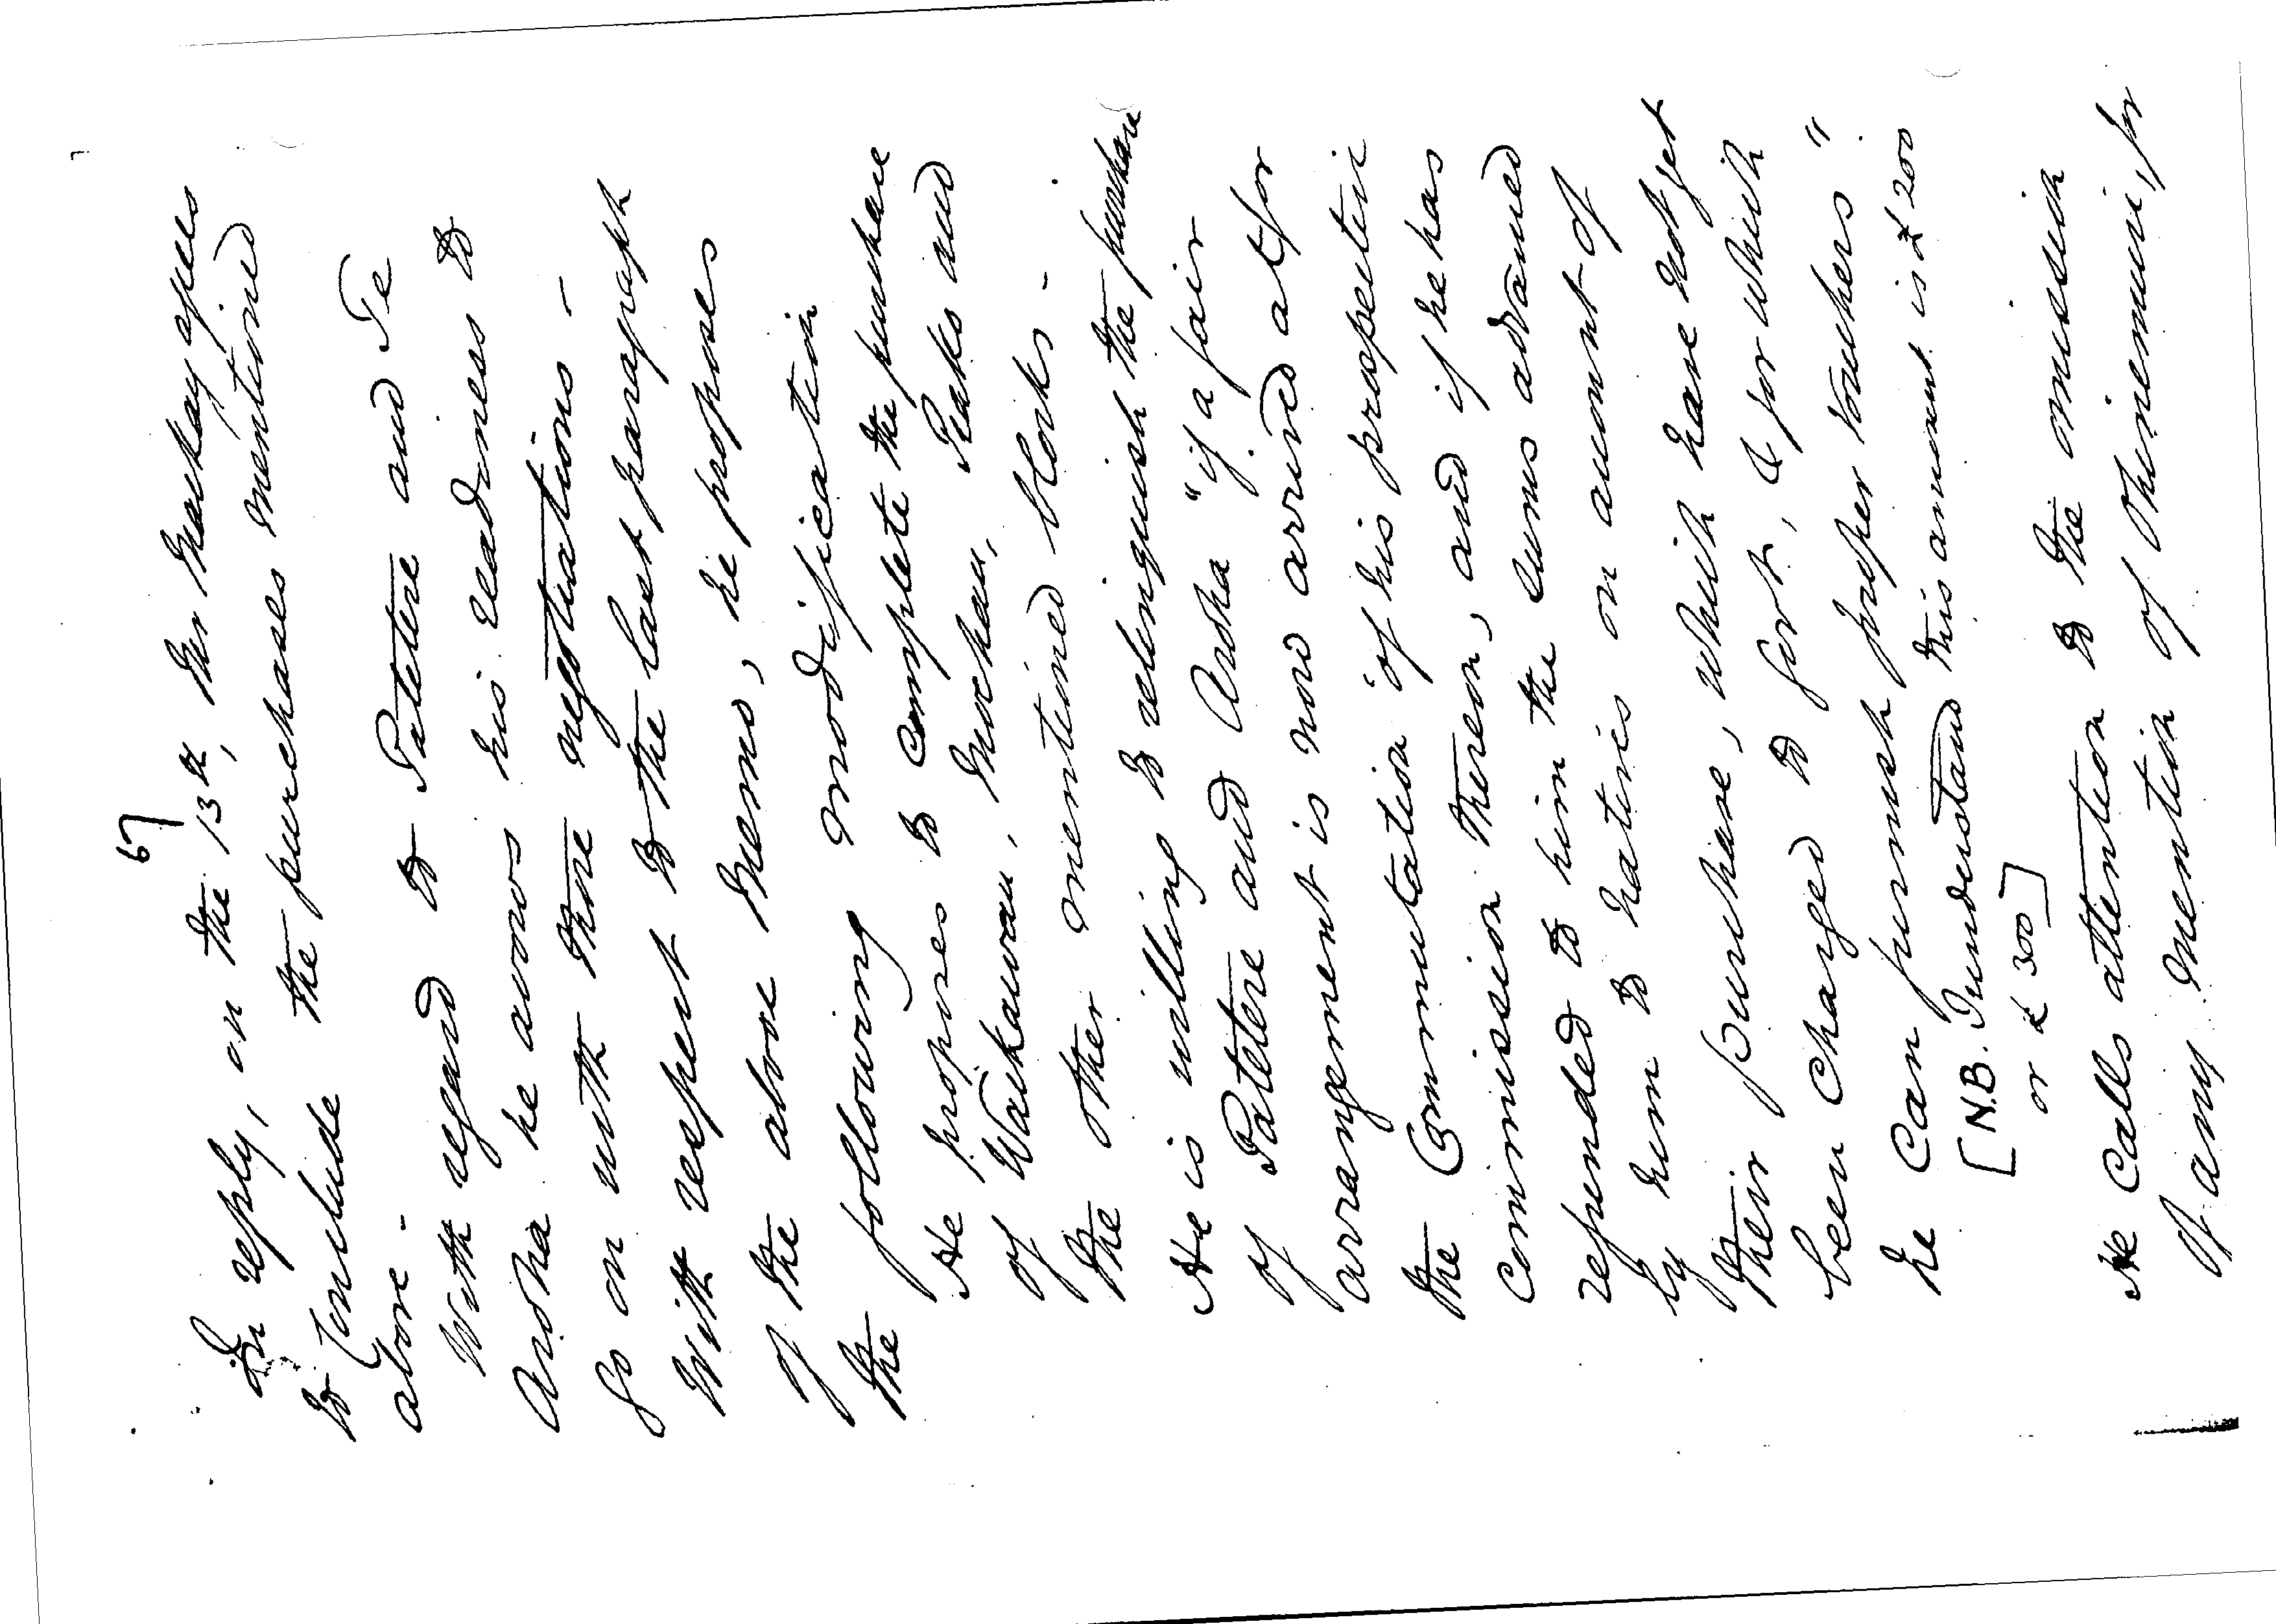 67
In reply, on the 13th, Mr Mackay agrees
to Conclude the purchases mentioned
above -
With regard to Patetere and Te
Aroha he avows his readiness to
go on with those negotiations -
With respect to the last paragraph
of the above Memo, he proposes
the following modification
He proposes to complete the purchase
of Waikawau, Moehau, Piako and
the other mentioned blocks -
He is willing to relinquish the purchase
of Patetere and Aroha "if a fair
arrangement is now arrived at for
the Commutation of his prospective
Commission thereon, and if he has
refunded to him the sums advanced
by him to natives on account of
their purchase, which have not yet
been charged to Govt., & for which
he can furnish proper vouchers"
[N.B. I understand this amount is £200
or £300]
He calls attention to the omission
of any mention of Ohinemuri, for